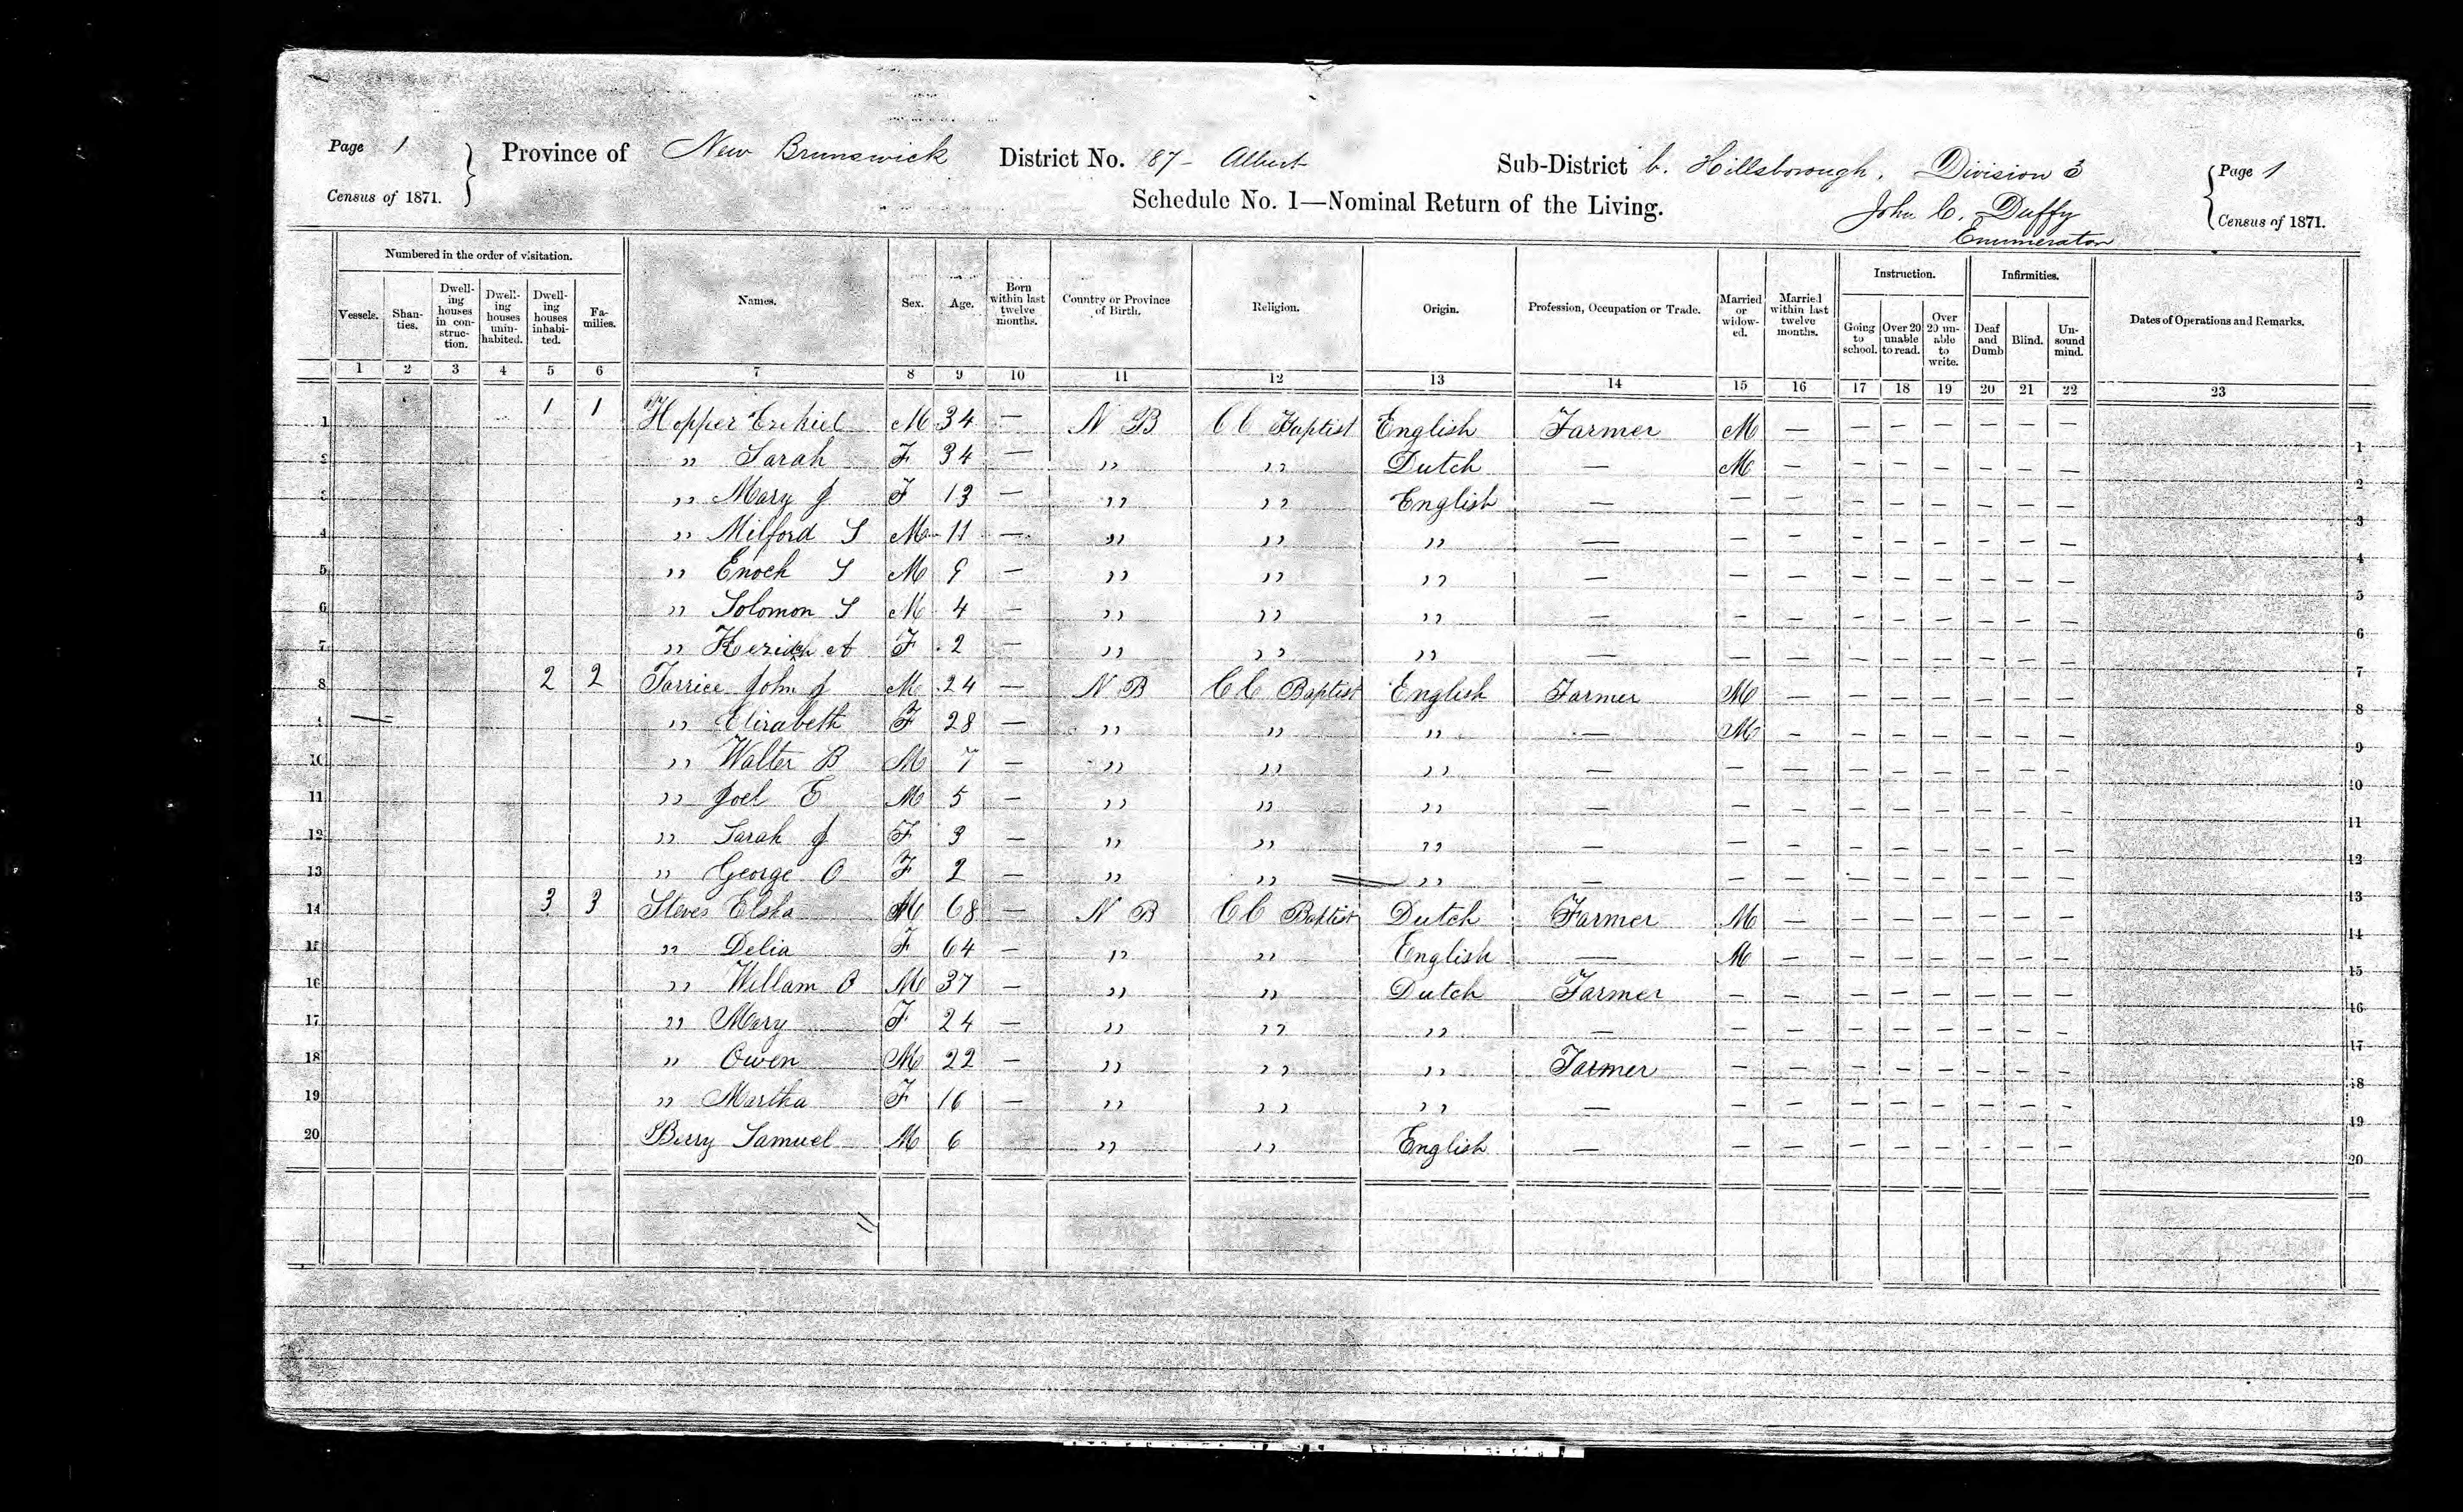 Page 1 Province of New Brunswick District No. 187 - Albert Sub-District b. Hillsborough, Division 3 Page 1
Census of 1871. Schedule No. 1—Nominal Return of the Living. John C. Duffy Census of 1871.
Enumerator
Numbered in the order of visitation. Names. Sex. Age. Born within last twelve months. Country or Province of Birth. Religion. Origin. Profession, Occupation or Trade. Married or widowed. Married within last twelve months. Instruction. Infirmities. Dates of Operations and Remarks.
Vessels. Shanties. Dwelling houses in construction. Dwelling houses uninhabited. Dwelling houses inhabited. Families. Going to school. Over 20 unable to read. Over 20 unable to write. Deaf and Dumb Blind. Unsound mind.
1 2 3 4 5 6 7 8 9 10 11 12 13 14 15 16 17 18 19 20 21 22 23
1 1 1 Hopper Ezekiel M 34 — N B C C Baptist English Farmer M — — — — — — — 1
2 " Sarah F 34 — " " Dutch — M — — — — — — — 2
3 " Mary J F 13 — " " English — — — — — — — — — 3
4 " Milford S M 11 — " " " — — — — — — — — — 4
5 " Enoch S M 9 — " " " — — — — — — — — — 5
6 " Solomon S M 4 — " " " — — — — — — — — — 6
7 " Keziah A F 2 — " " " — — — — — — — — — 7
8 2 2 John J M 24 — N B C C Baptist English Farmer M — — — — — — — 8
9 " Elizabeth F 28 — " " " — M — — — — — — — 9
10 " Walter B M 7 — " " " — — — — — — — — — 10
11 " Joel E M 5 — " " " — — — — — — — — — 11
12 " Sarah J F 3 — " " " — — — — — — — — — 12
13 " George O F 2 — " " " — — — — — — — — — 13
14 3 3 Steves Elsha M 68 — N B C C Baptist Dutch Farmer M — — — — — — — 14
15 " Delia F 64 — " " English — M — — — — — — — 15
16 " Willam O M 37 — " " Dutch Farmer — — — — — — — — 16
17 " Mary F 24 — " " " — — — — — — — — — 17
18 " Owen M 22 — " " " Farmer — — — — — — — — 18
19 " Martha F 16 — " " " — — — — — — — — — 19
20 Berry Samuel M 6 " " English — — — — — — — — — 20